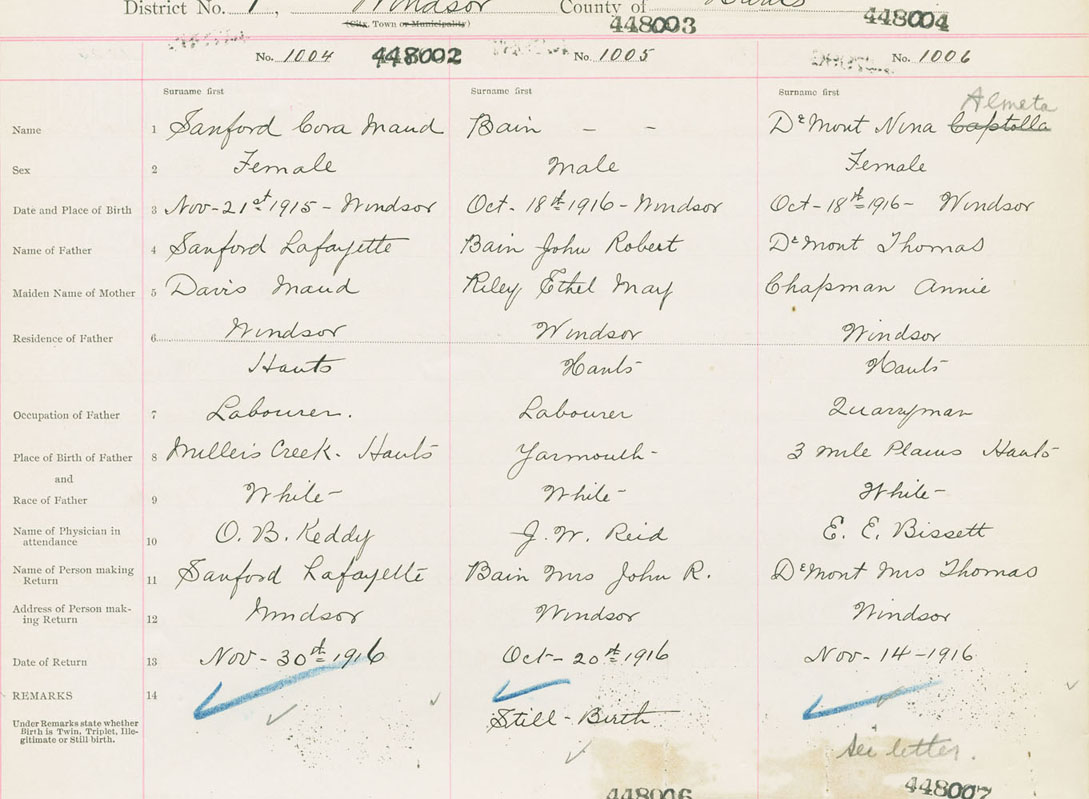 District No. 1, Windsor County of Hants
(City, Town or Municipality)
448003
448004
No. 1004 448002 No. 1005 No. 1006
Surname first Surname first Surname first
Almeta
Name 1 Sanford Cora Maud Bain – – DeMont Nina Captolla
Sex 2 Female Male Female
Date and Place of Birth 3 Nov-21st 1915 - Windsor Oct- 18th 1916 - Windsor Oct-18th 1916- Windsor
Name of Father 4 Sanford Lafayette Bain John Robert DeMont Thomas
Maiden Name of Mother 5 Davis Maud Riley Ethel May Chapman Annie
Residence of Father 6 Windsor Windsor Windsor
Hants Hants Hants
Occupation of Father 7 Labourer. Labourer Quarryman
Place of Birth of Father 8 Miller's Creek- Hants Yarmouth- 3 mile Plains Hants-
and
Race of Father 9 White- White- White-
Name of Physician in
attendance 10 O. B. Keddy J. W. Reid E. E. Bissett
Name of Person making
Return 11 Sanford Lafayette Bain Mrs John R. DeMont Mrs Thomas
Address of Person mak-
ing Return 12 Windsor Windsor Windsor
Date of Return 13 Nov- 30th 1916 Oct- 20th 1916 Nov-14-1916
REMARKS 14
Under Remarks state whether
Birth is Twin, Triplet, Ille-
gitimate or Still birth.
Still-Birth
see letter.
448006
448007